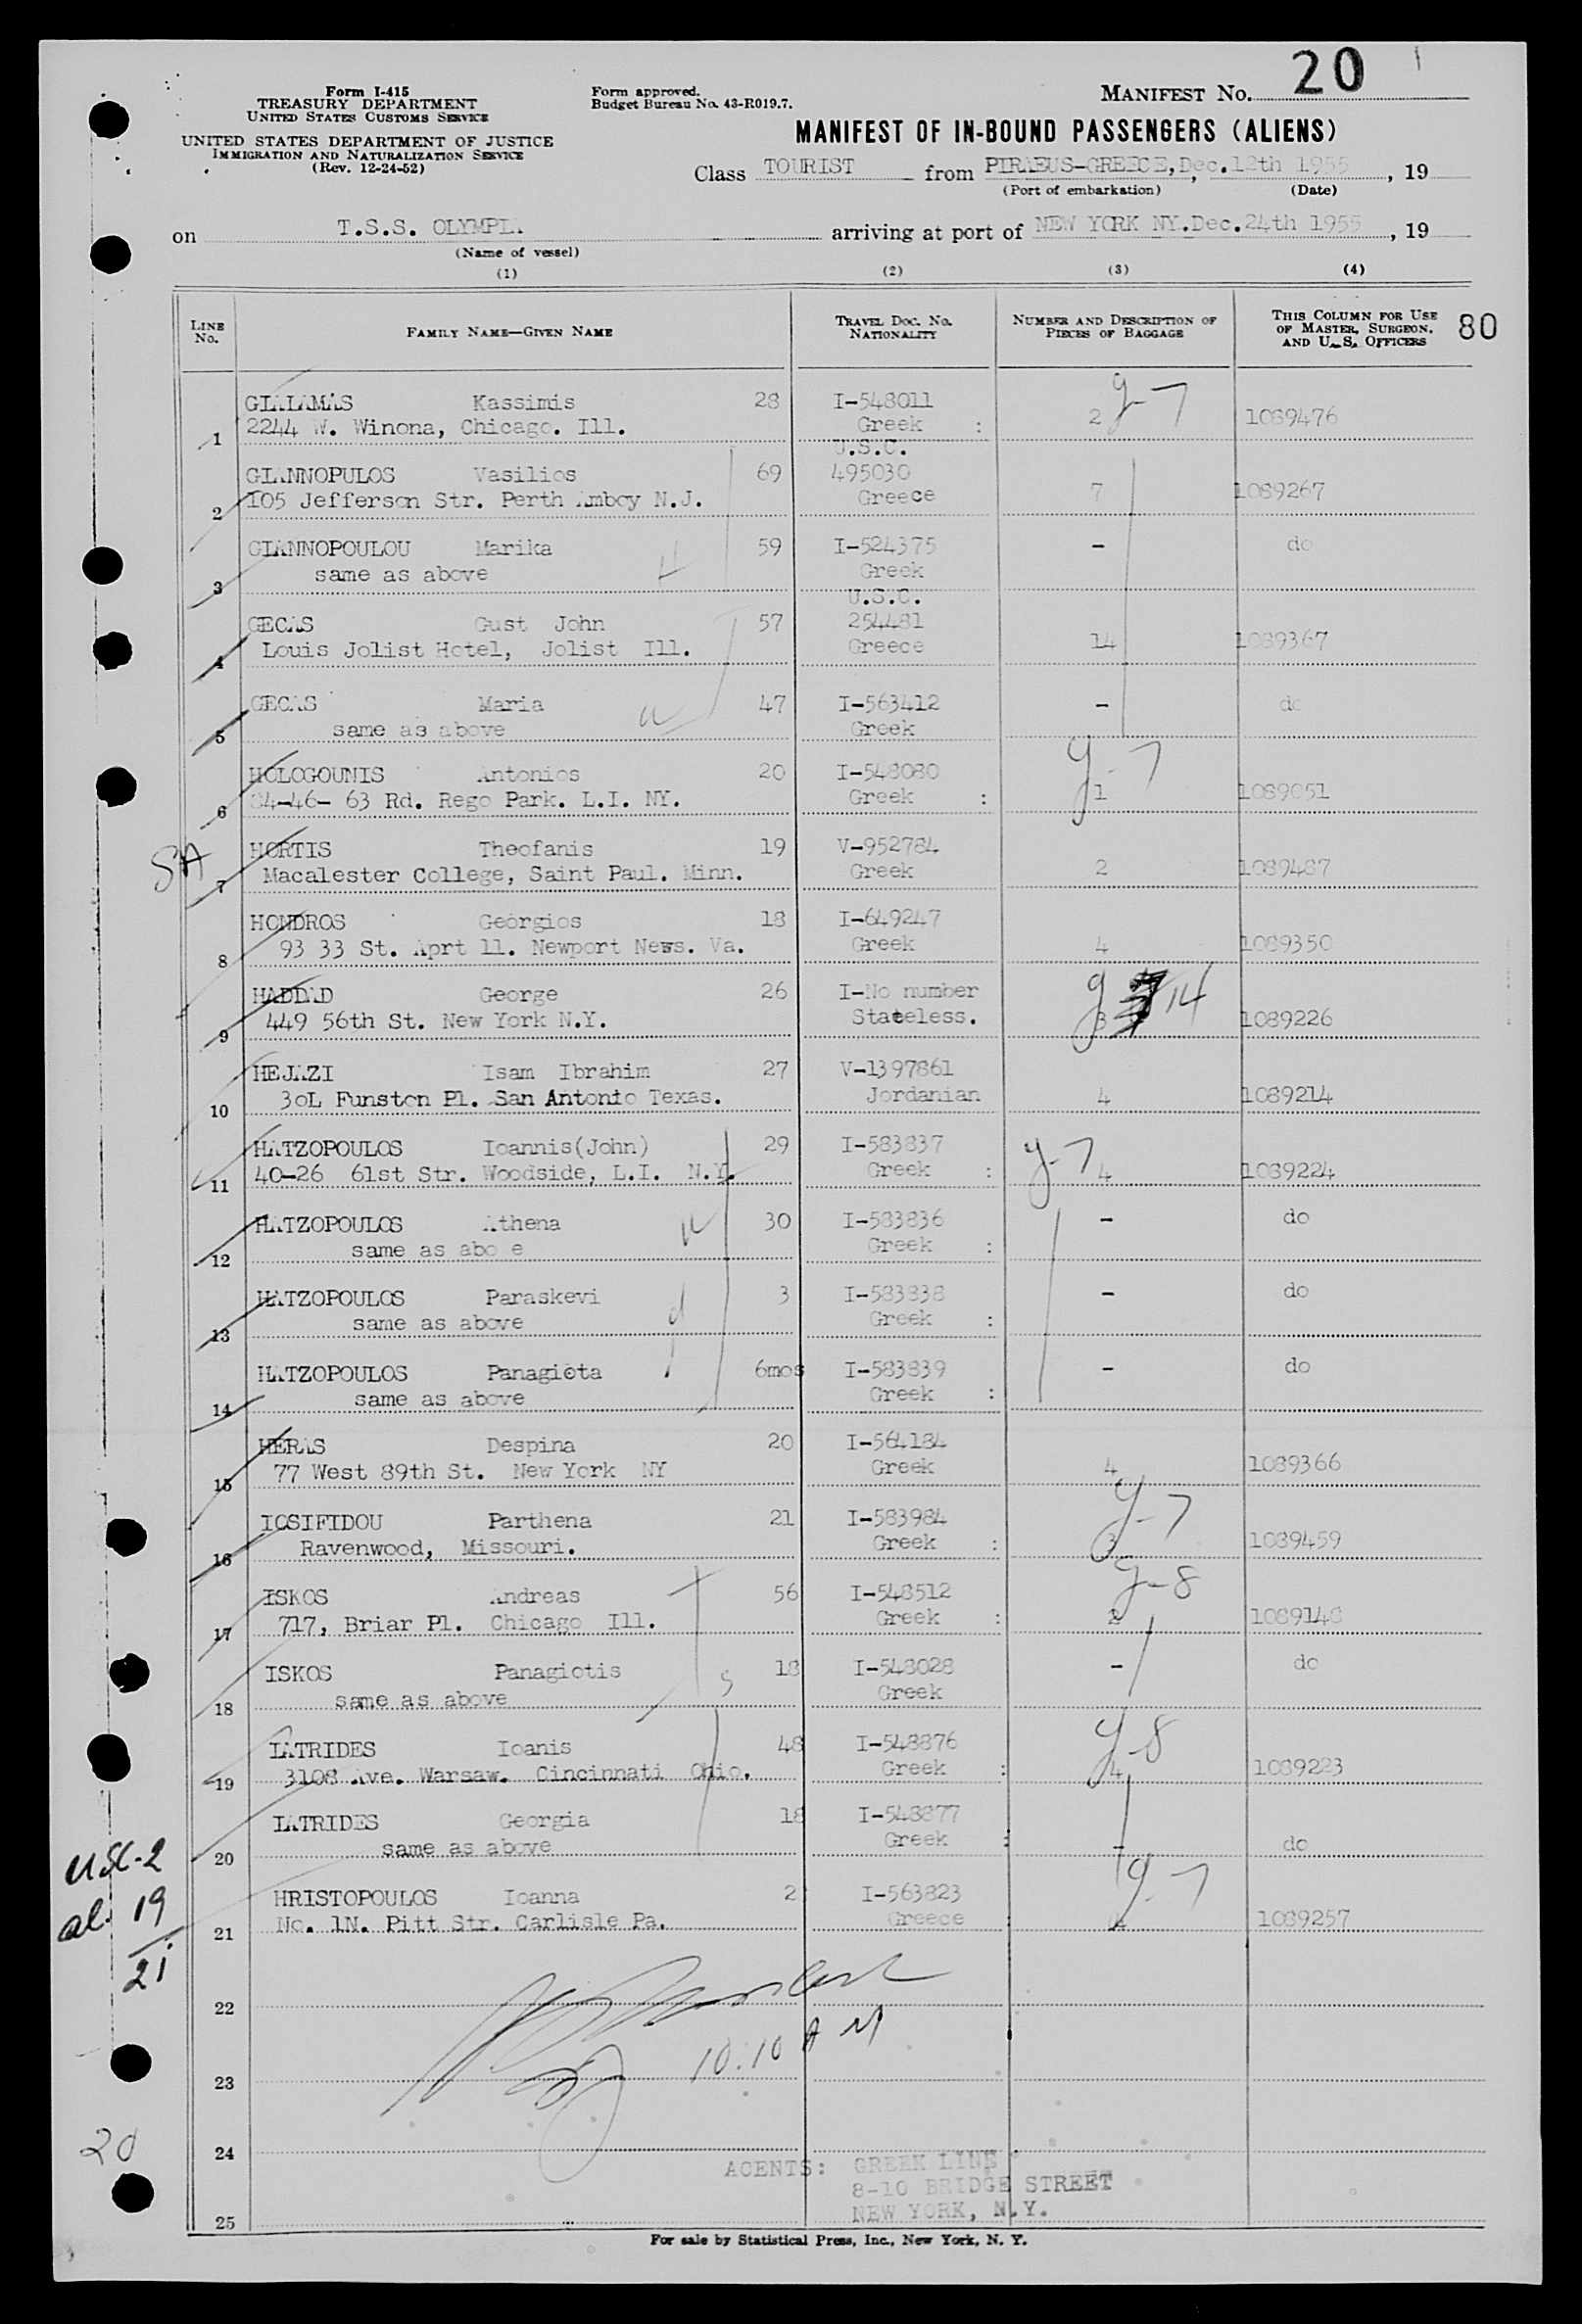 20
Form I-415
TREASURY DEPARTMENT
UNITED STATES CUSTOMS SERVICE
UNITED STATES DEPARTMENT OF JUSTICE
IMMIGRATION AND NATURALIZATION SERVICE
(Rev. 12-24-52)
Form approved.
Budget Bureau No. 43-R019.7.
MANIFEST NO.
MANIFEST OF IN-BOUND PASSENGERS (ALIENS)
Class TOURIST from PIRAEUS-GREECE, Dec.12th 1955, 19
(Port of embarkation) (Date)
on T.S.S. OLYMPIA arriving at port of NEW YORK NY.Dec.24th 1955, 19
(Name of vessel)
(1) (2) (3) (4)
LINE No. FAMILY NAME—GIVEN NAME TRAVEL DOC. NO. NATIONALITY NUMBER AND DESCRIPTION OF PIECES OF BAGGAGE THIS COLUMN FOR USE OF MASTER, SURGEON, AND U. S. OFFICERS 80
GIALAMAS Kassimis 28 I-548011 y-7
1 2244 W. Winona, Chicago. Ill. Greek : 2 1089476
U.S.C.
GIANNOPULOS Vasilios 69 495030
2 105 Jefferson Str. Perth Amboy N.J. Greece 7 1089267
GIANNOPOULOU Marika 59 I-524375 - do
3 same as above Greek
U.S.C.
GECAS Gust John 57 254481
4 Louis Jolist Hotel, Jolist Ill. Greece 14 1089367
GECAS Maria 47 I-563412 - do
5 same as above Greek
HOLOGOUNIS Antonios 20 I-548080 y-7
6 84-46- 63 Rd. Rego Park. L.I. NY. Greek : 1 1089051
SA
HORTIS Theofanis 19 V-952784
7 Macalester College, Saint Paul. Minn. Greek 2 1089487
HONDROS Georgios 18 I-649247
8 93 33 St. Aprt 11. Newport News. Va. Greek 4 1089350
HADDAD George 26 I-No number y 14
9 449 56th St. New York N.Y. Stateless. 3 1089226
HEJAZI Isam Ibrahim 27 V-1397861
10 30L Funston Pl. San Antonio Texas. Jordanian 4 1089214
HATZOPOULOS Ioannis(John) 29 I-583837 y-7
11 40-26 61st Str. Woodside, L.I. N.Y. Greek : 4 1089224
HATZOPOULOS Athena 30 I-583836 - do
12 same as abo e Greek :
HATZOPOULOS Paraskevi 3 I-583838 - do
13 same as above Greek :
HATZOPOULOS Panagiota 6mos I-583839 - do
14 same as above Greek :
HERAS Despina 20 I-564184
15 77 West 89th St. New York NY Greek 4 1089366
IOSIFIDOU Parthena 21 I-583984 y-7
16 Ravenwood, Missouri. Greek : 3 1089459
ISKOS Andreas 56 I-548512 y-8
17 717, Briar Pl. Chicago Ill. Greek : 2 1089148
ISKOS Panagiotis 18 I-548028 - do
18 same as above Greek
IATRIDES Ioanis 48 I-548876 y-8
19 3108 Ave. Warsaw. Cincinnati Ohio. Greek : 4 1089223
IATRIDES Georgia 18 I-548877
20 same as above Greek : - do
USC-2
al. 19
21
HRISTOPOULOS Ioanna 2 I-563823 y-7
21 No. 1N. Pitt Str. Carlisle Pa. Greece : 1089257
22
10:10 AM
23
20
24
AGENTS: GREEK LINE
8-10 BRIDGE STREET
NEW YORK, N.Y.
25
For sale by Statistical Press, Inc., New York, N. Y.